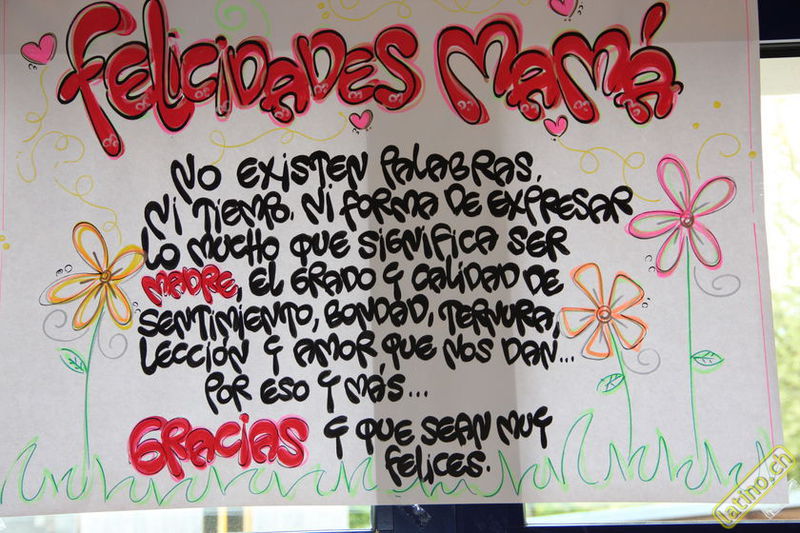 FELICIDADES MAMÁ
NO EXISTEN PALABRAS,
NI TIEMPO, NI FORMA DE EXPRESAR
LO MUCHO QUE SIGNIFICA SER
MADRE, EL GRADO Y CALIDAD DE
SENTIMIENTO, BONDAD, TERNURA,
LECCIÓN Y AMOR QUE NOS DAN...
POR ESO Y MÁS...
GRACIAS Y QUE SEAN MUY
FELICES.
latino.ch